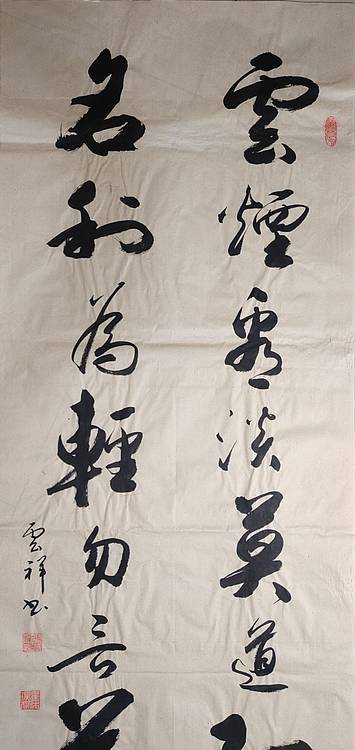 雲煙看淡莫道
名利為輕勿言
雲祥书